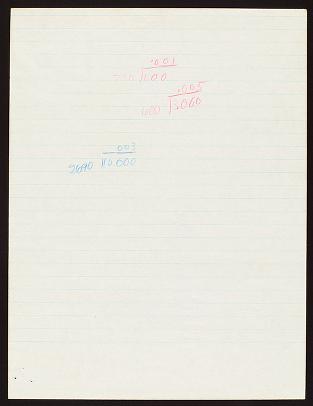 .001
1.00
.005
600 3.000
.003
2690 10.000